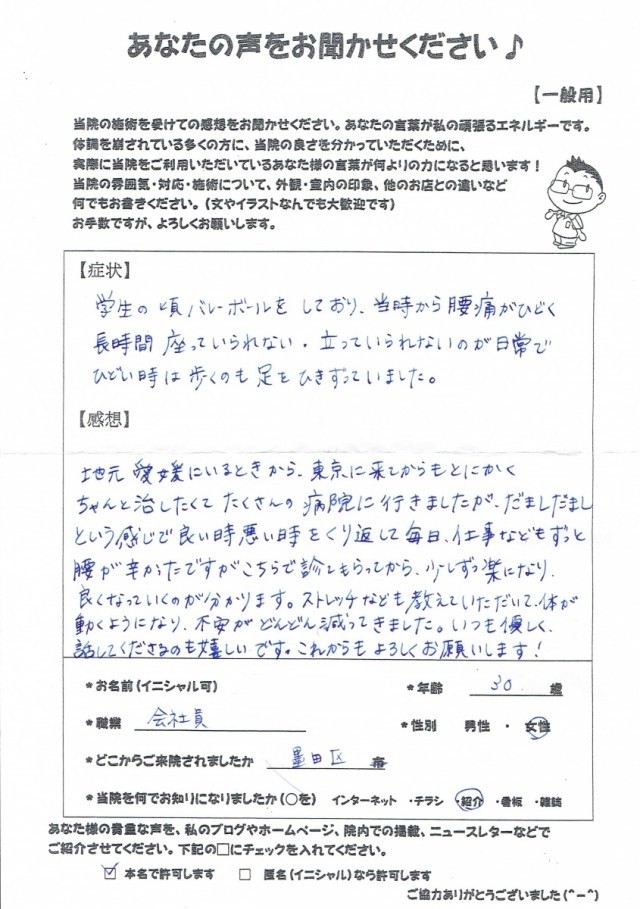 あなたの声をお聞かせください♪
【一般用】
当院の施術を受けての感想をお聞かせください。あなたの言葉が私の頑張るエネルギーです。
体調を崩されている多くの方に、当院の良さを分かっていただくために、
実際に当院をご利用いただいているあなた様の言葉が何よりの力になると思います!
当院の雰囲気・対応・施術について、外観・室内の印象、他のお店との違いなど
何でもお書きください。(文やイラストなんでも大歓迎です)
お手数ですが、よろしくお願いします。
【症状】
学生の頃バレーボールをしており、当時から腰痛がひどく
長時間座っていられない・立っていられないのが日常で
ひどい時は歩くのも足をひきずっていました。
【感想】
地元愛媛にいるときから、東京に来てからもとにかく
ちゃんと治したくてたくさんの病院に行きましたが、だましだまし
という感じで良い時悪い時をくり返して毎日、仕事などもずっと
腰が辛かたですがこちらで診てもらってから、少しずつ楽になり、
良くなっていくのが分かります。ストレッチなども教えていただいて、体が
動くようになり、不安がどんどん減ってきました。いつも優しく、
話してくださるのも嬉しいです。これからもよろしくお願いします!
*お名前(イニシャル可)
*年齢 30 歳
*職業 会社員
*性別 男性 ・ 女性
*どこからご来院されましたか 墨田区
*当院を何でお知りになりましたか(○を) インターネット ・チラシ ・紹介 ・看板 ・雑誌
あなた様の貴重な声を、私のブログやホームページ、院内での掲載、ニュースレターなどで
ご紹介させてください。下記の□にチェックを入れてください。
☑ 本名で許可します □ 匿名(イニシャル)なら許可します
ご協力ありがとうございました(^-^)